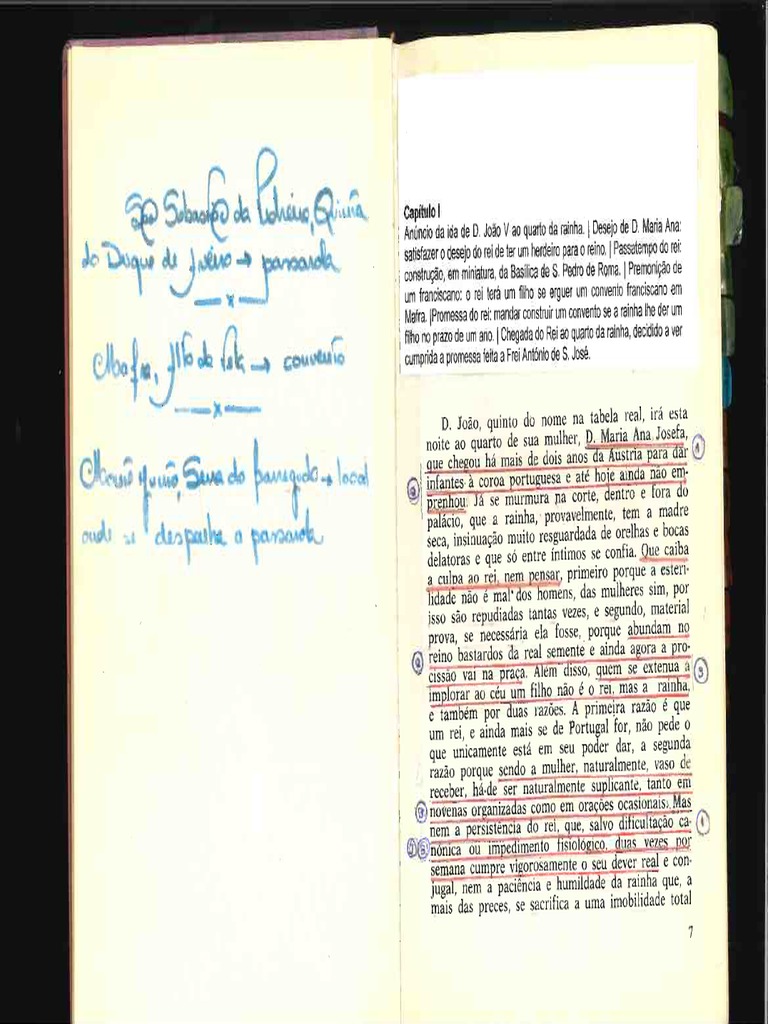 São Sebastião da Pedreira, Quinta
do Duque de Aveiro → passarola
— x —
Mafra, Alto da Vela → convento
— x —
Monte Junto, Serra do Barregudo → local
onde se despenha a passarola
Capítulo I
Anúncio da ida de D. João V ao quarto da rainha. | Desejo de D. Maria Ana:
satisfazer o desejo do rei de ter um herdeiro para o reino. | Passatempo do rei:
construção, em miniatura, da Basílica de S. Pedro de Roma. | Premonição de
um franciscano: o rei terá um filho se erguer um convento franciscano em
Mafra. |Promessa do rei: mandar construir um convento se a rainha lhe der um
filho no prazo de um ano. | Chegada do Rei ao quarto da rainha, decidido a ver
cumprida a promessa feita a Frei António de S. José.
D. João, quinto do nome na tabela real, irá esta
noite ao quarto de sua mulher, D. Maria Ana Josefa,
que chegou há mais de dois anos da Áustria para dar
infantes à coroa portuguesa e até hoje ainda não em-
prenhou. Já se murmura na corte, dentro e fora do
palácio, que a rainha, provavelmente, tem a madre
seca, insinuação muito resguardada de orelhas e bocas
delatoras e que só entre íntimos se confia. Que caiba
a culpa ao rei, nem pensar, primeiro porque a esteri-
lidade não é mal dos homens, das mulheres sim, por
isso são repudiadas tantas vezes, e segundo, material
prova, se necessária ela fosse, porque abundam no
reino bastardos da real semente e ainda agora a pro-
cissão vai na praça. Além disso, quem se extenua a
implorar ao céu um filho não é o rei, mas a rainha,
e também por duas razões. A primeira razão é que
um rei, e ainda mais se de Portugal for, não pede o
que unicamente está em seu poder dar, a segunda
razão porque sendo a mulher, naturalmente, vaso de
receber, há-de ser naturalmente suplicante, tanto em
novenas organizadas como em orações ocasionais. Mas
nem a persistência do rei, que, salvo dificultação ca-
nónica ou impedimento fisiológico, duas vezes por
semana cumpre vigorosamente o seu dever real e con-
jugal, nem a paciência e humildade da rainha que, a
mais das preces, se sacrifica a uma imobilidade total
7